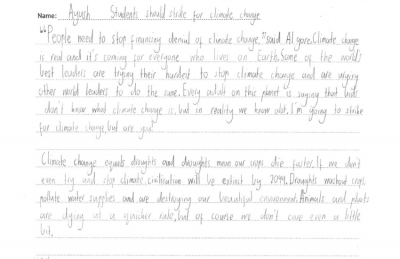 Name: Ayush Students should strike for climate change
"People need to stop financing denial of climate change," said Al gore. Climate change
is real and it's coming for everyone who lives on Earth. Some of the world's
best leaders are trying their hardest to stop climate change and are urging
other world leaders to do the same. Every adult on this planet is saying that kids
don't know what climate change is, but in reality we know alot. I'm going to strike
for climate change, but are you?
Climate change equals droughts and droughts mean our crops die faster. If we don't
even try and stop climate, civilication will be extinct by 2099. Droughts washout crops,
pollute water supplies and are destroying our beautiful environment. Animals and plants
are dying at a quicker rate, but of course we don't care even a little
bit.